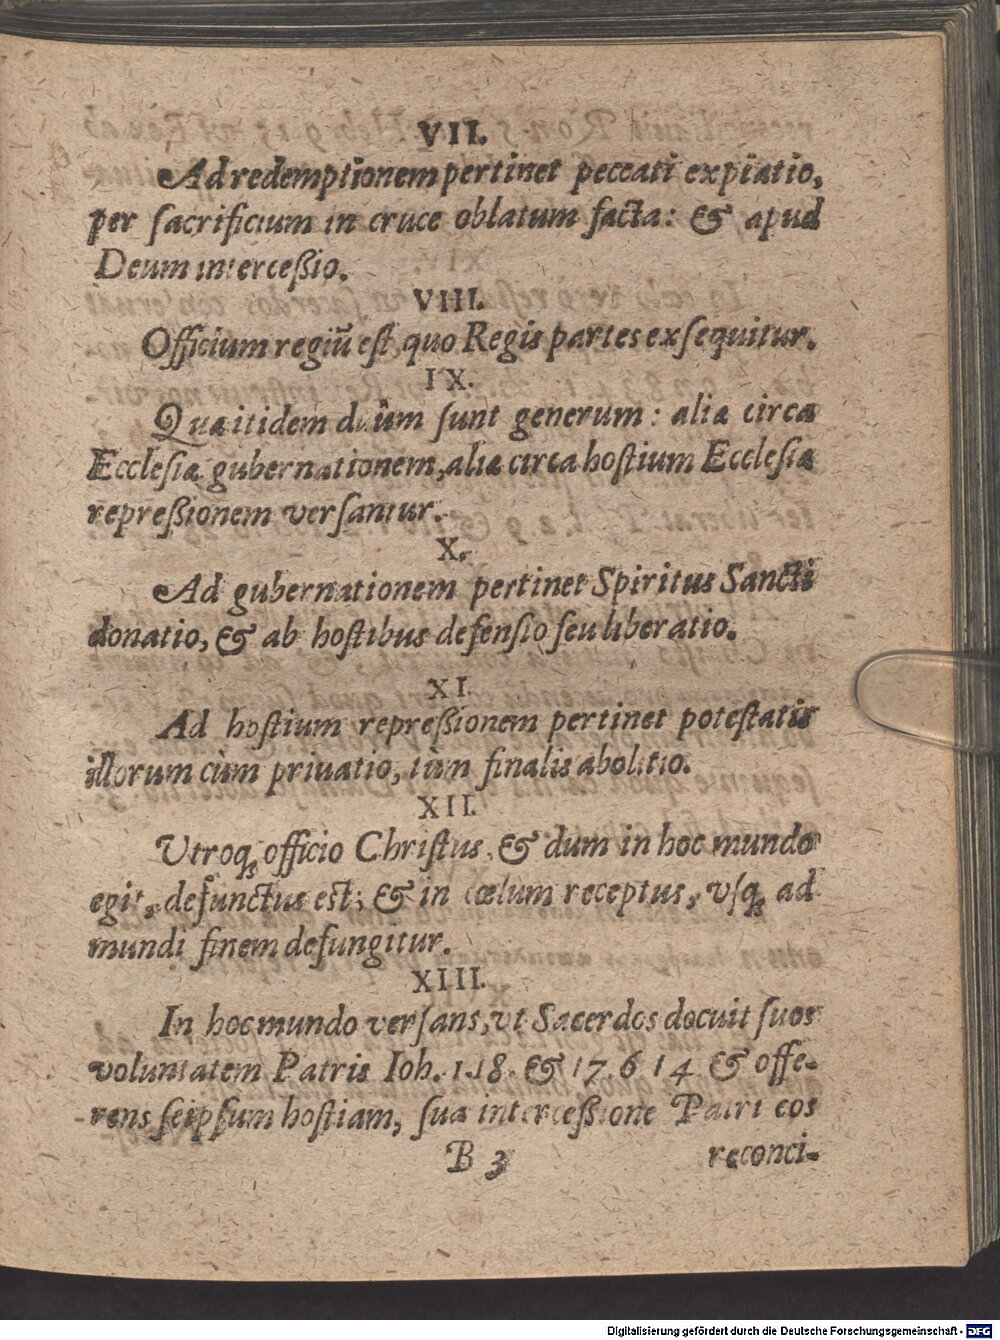 VII.
Ad redemptionem pertinet peccati expiatio,
per ſacrificium in cruce oblatum facta: & apud
Deum interceßio.
VIII.
Officium regiū eſt, quo Regis partes exſequitur.
IX.
Quæ itidem duûm ſunt generum: aliæ circa
Eccleſiæ gubernationem, aliæ circa hoſtium Eccleſiæ
repreßionem verſantur.
X.
Ad gubernationem pertinet Spiritus Sancti
donatio, & ab hoſtibus defenſio ſeu liberatio.
XI.
Ad hoſtium repreßionem pertinet poteſtatis
illorum cùm priuatio, tùm finalis abolitio.
XII.
Utroqꝫ officio Chriſtus, & dum in hoc mundo
egit, defunctus est; & in cœlum receptus, vſqꝫ ad
mundi finem defungitur.
XIII.
In hoc mundo verſans, vt Sacerdos docuit ſuos
voluntatem Patris Ioh. 1.18. & 17. 6 14 & offe-
rens ſeipſum hoſtiam, ſua interceßione Patri eos
B 3 reconci-
Digitalisierung gefördert durch die Deutsche Forschungsgemeinschaft - DFG